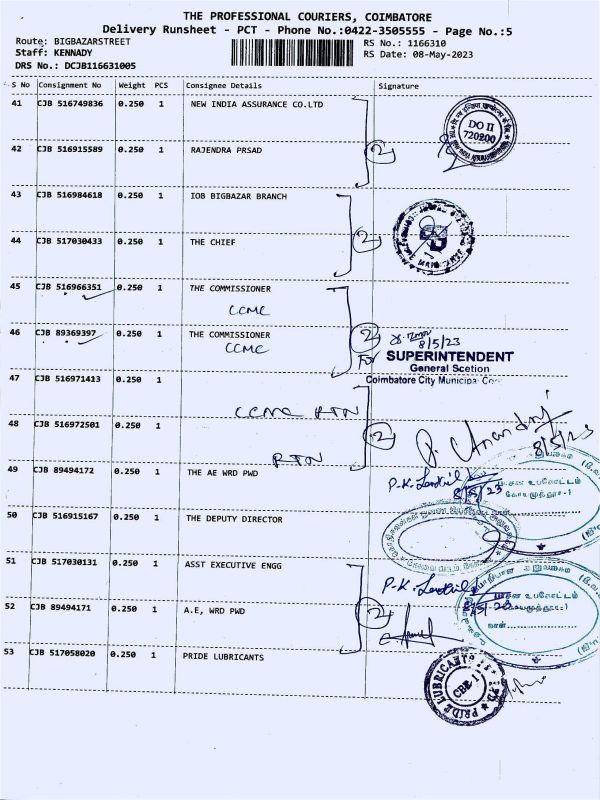 THE PROFESSIONAL COURIERS, COIMBATORE
Delivery Runsheet - PCT - Phone No.:0422-3505555 - Page No.:5
Route: BIGBAZARSTREET RS No.: 1166310
Staff: KENNADY RS Date: 08-May-2023
DRS No.: DCJB116631005
S No Consignment No Weight PCS Consignee Details Signature
41 CJB 516749836 0.250 1 NEW INDIA ASSURANCE CO.LTD
DO II
720200
42 CJB 516915589 0.250 1 RAJENDRA PRSAD
2
43 CJB 516984618 0.250 1 IOB BIGBAZAR BRANCH
44 CJB 517030433 0.250 1 THE CHIEF
2
45 CJB 516966351 0.250 1 THE COMMISSIONER
CCMC
46 CJB 89369397 0.250 1 THE COMMISSIONER
CCMC
2
8/5/23
For SUPERINTENDENT
General Scetion
Coimbatore City Municipal Cor
47 CJB 516971413 0.250 1
CCMC RTN
48 CJB 516972501 0.250 1
RTN
2
8/5/23
49 CJB 89494172 0.250 1 THE AE WRD PWD
8/5/23
பாசன உபகோட்டம்
கோயமுத்தூர்-1
50 CJB 516915167 0.250 1 THE DEPUTY DIRECTOR
51 CJB 517030131 0.250 1 ASST EXECUTIVE ENGG
8/5/23
பாசன உபகோட்டம்
கோயமுத்தூர்-1
நாள்
52 CJB 89494171 0.250 1 A.E, WRD PWD
2
53 CJB 517058020 0.250 1 PRIDE LUBRICANTS
PRIDE LUBRICANTS
CBE 1